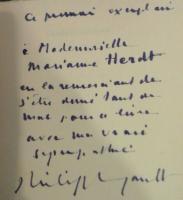 Ce premier exemplaire
à Mademoiselle
Marianne Herdt
en la remerciant de
s'être donné tant de
mal pour ce livre
avec ma vraie
sympathie